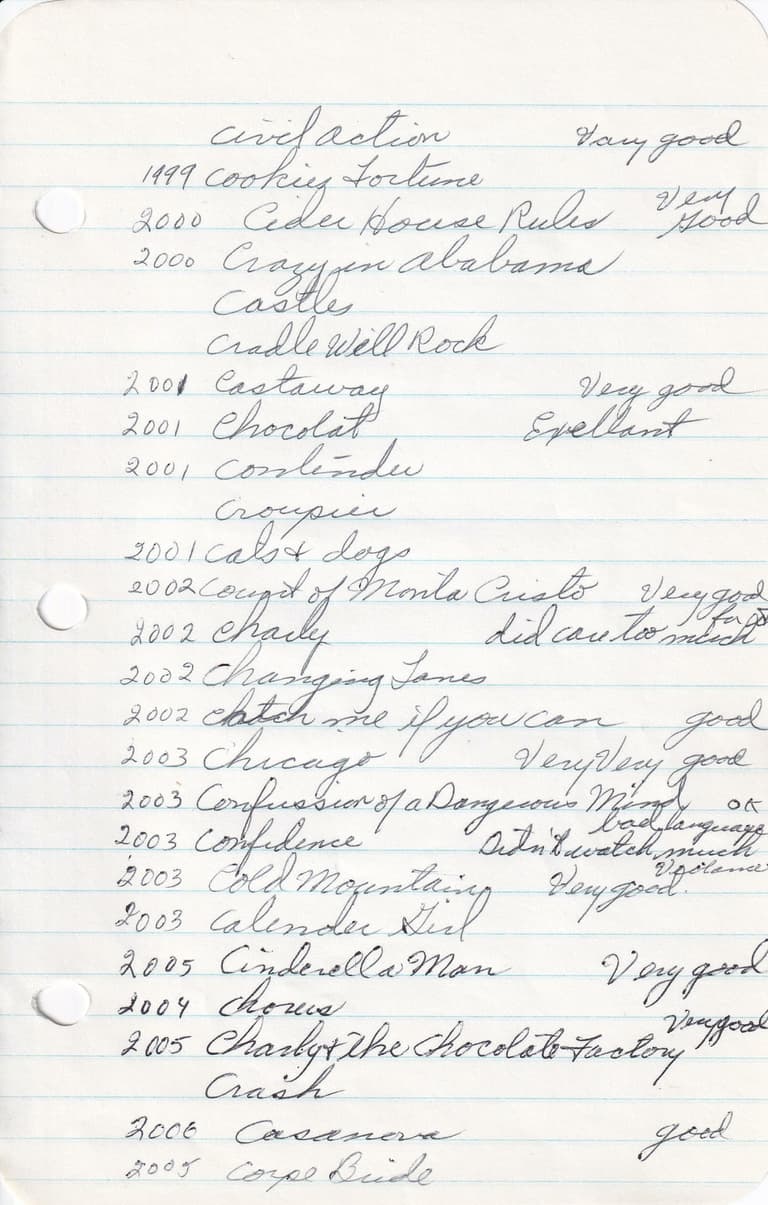 Civil Action Very good
1999 Cookies Fortune
2000 Cider House Rules Very Good
2000 Crazy in Alabama
Castles
Cradle Will Rock
2001 Castaway Very good
2001 Chocolat Exellant
2001 Contender
Croupier
2001 Cats & dogs
2002 Count of Monta Cristo Very good
2002 Charly did care too much for it
2002 Changing Lanes
2002 Catch me if you can good
2003 Chicago Very Very good
2003 Confussion of a Dangerous Mind OK
bad language
2003 Confidence Didn't watch much
2003 Cold Mountain Very good. Violance
2003 Calender Girl
2005 Cinderella Man Very good
2004 Chorus
2005 Charly & the Chocolate Factory Very good
Crash
2006 Casanova good
2005 Corpe Bride